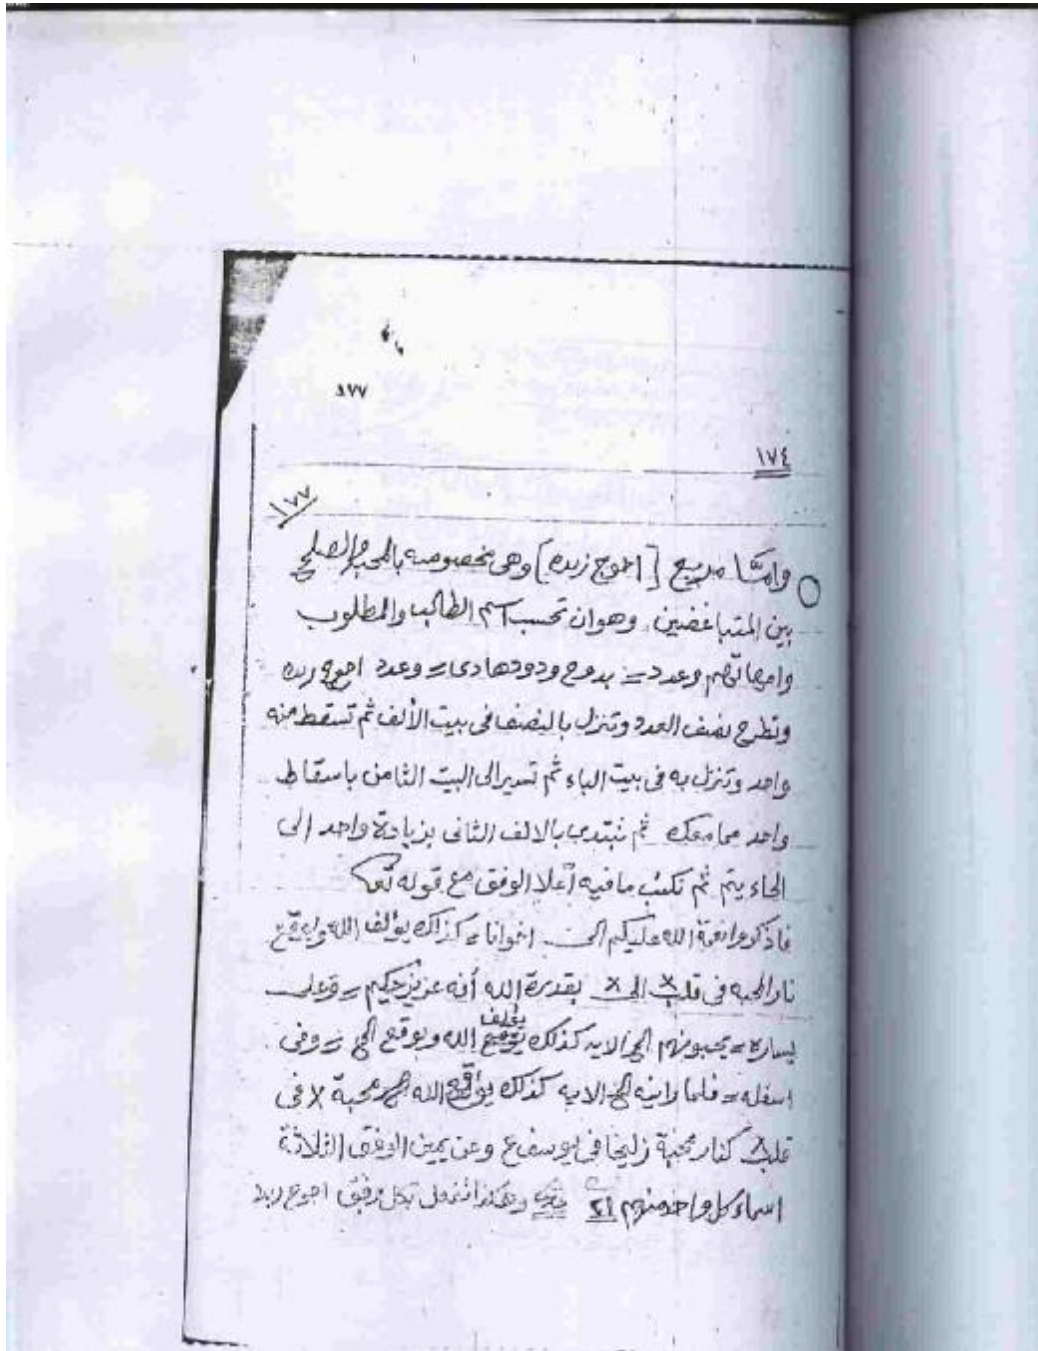 ٨٧٧
١٧٤
١٧٧
وامَّا مربع [اجوج زبده] وهى مخصوصه بالمحبة والصلح
بين المتباغضين. وهو ان تحسب اسم الطالب والمطلوب
وامهاتهم وعدد = بدوح ودود هادى = وعدد اجوج زبده
وتطرح نصف العدد وتنزل بالنصف فى بيت الألف ثم تسقط منه
واحد وتنزل به فى بيت الباء ثم تسير الى البيت الثامن باسقاط
واحد مما معك ثم نبتدى بالالف الثانى بزيادة واحد الى
الحاء يتم ثم تكتب ما فيه أعلا الوفق مع قوله تعا
فاذكروا نعمة الله عليكم الى اخوانا = كذلك يؤلف الله ويوقع
نار المحبه فى قلب x الى x بقدرة الله أنه عزيز حكيم = وعلى
يساره = يحبونهم الى الايه كذلك يؤلف الله ويوقع الى = وفى
اسفله = فلما راينه الى الايه كذلك يوقع الله محبة x فى
قلب كنار محبة زليخا فى يوسف ع وعن يمين الوفق الثلاثة
اسماء كل واحد منهم ٢١ وهكذا تفعل بكل وفق اجوج زبد